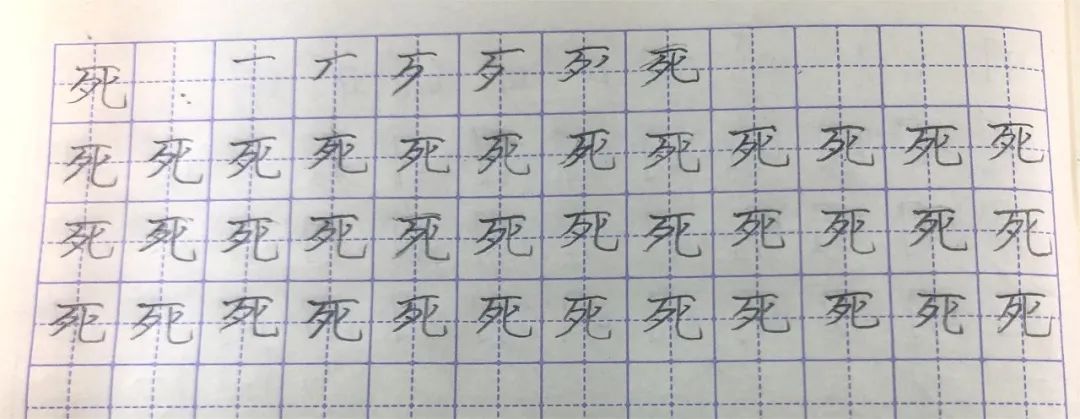 死 一 丆 歹 死
死 死 死 死 死 死 死 死 死 死 死 死
死 死 死 死 死 死 死 死 死 死 死 死
死 死 死 死 死 死 死 死 死 死 死 死